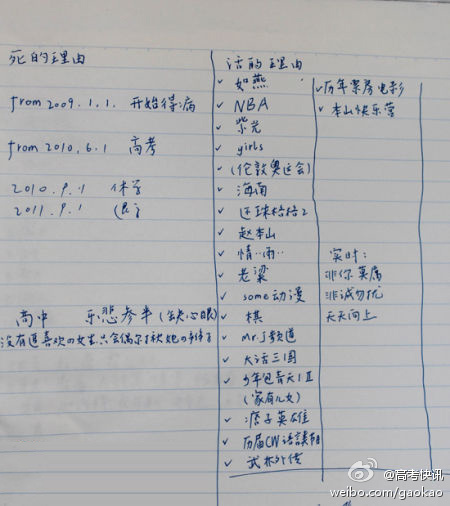 死的理由
from 2009.1.1. 开始得病
from 2010.6.1 高考
2010.9.1 休学
2011.9.1
高中 乐悲参半(缺心眼)
没有追喜欢的女生只会偶尔
活的理由
✓ 如燕
✓ NBA
✓ 紫光
✓ girls
✓ (伦敦奥运会)
✓ 海南
✓ 还珠格格2
✓ 赵本山
✓ 情…雨…
✓ 老梁
✓ some动漫
✓ 棋
✓ Mr.J频道
✓ 大话三国
✓ 少年包青天 I II
(家有儿女)
✓ 痞子英雄
✓ 历届CW
✓ 武林外传
✓ 历年票房电影
✓ 本山快乐营
实时:
非你莫属
非诚勿扰
天天向上
@高考快讯
weibo.com/gaokao